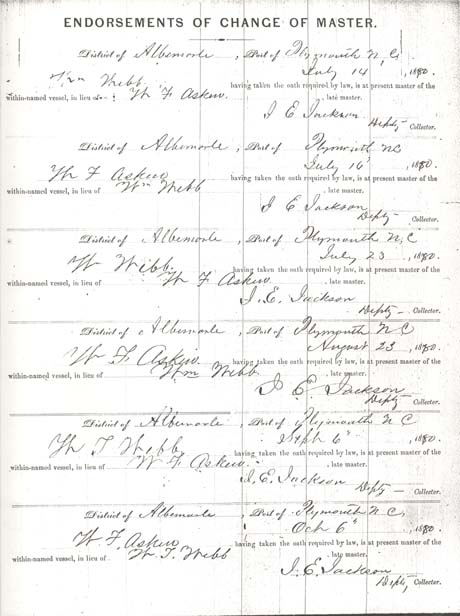 ENDORSEMENTS OF CHANGE OF MASTER.
District of Albemarle, Port of Plymouth N, C,
July 14, 1880.
Wm Webb having taken the oath required by law, is at present master of the
within-named vessel, in lieu of W F Askew, late master.
J E Jackson
Depty Collector.
District of Albemarle, Port of Plymouth NC
July 16, 1880.
W F Askew having taken the oath required by law, is at present master of the
within-named vessel, in lieu of Wm Webb, late master.
J E Jackson
Depty Collector.
District of Albemarle, Port of Plymouth N, C
July 23, 1880.
W Webb having taken the oath required by law, is at present master of the
within-named vessel, in lieu of W F Askew, late master.
J. E. Jackson
Depty Collector.
District of Albemarle, Port of Plymouth N C
August 23, 1880.
W F. Askew having taken the oath required by law, is at present master of the
within-named vessel, in lieu of Wm Webb, late master.
J E. Jackson
Depty Collector.
District of Albemarle, Port of Plymouth N C
Sept 6, 1880.
W T Webb having taken the oath required by law, is at present master of the
within-named vessel, in lieu of W F Askew, late master.
J. E. Jackson
Depty Collector.
District of Albemarle, Port of Plymouth N C,
Oct 6, 1880.
W F. Askew having taken the oath required by law, is at present master of the
within-named vessel, in lieu of W. T. Webb, late master.
J. E. Jackson
Depty Collector.